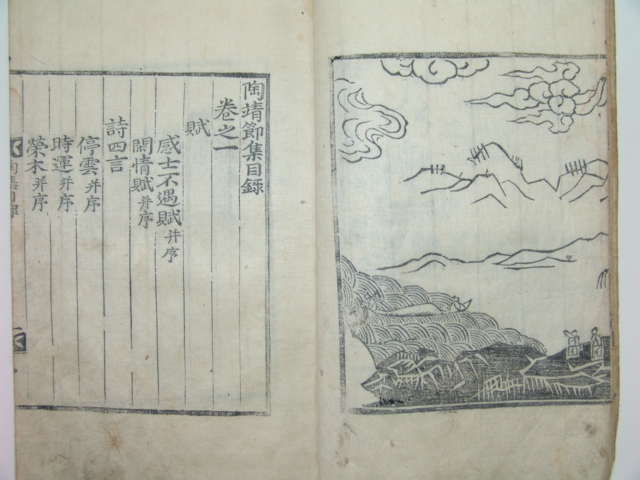 陶靖節集目錄
卷之一
賦
感士不遇賦并序
閑情賦并序
詩四言
停雲并序
時運并序
榮木并序